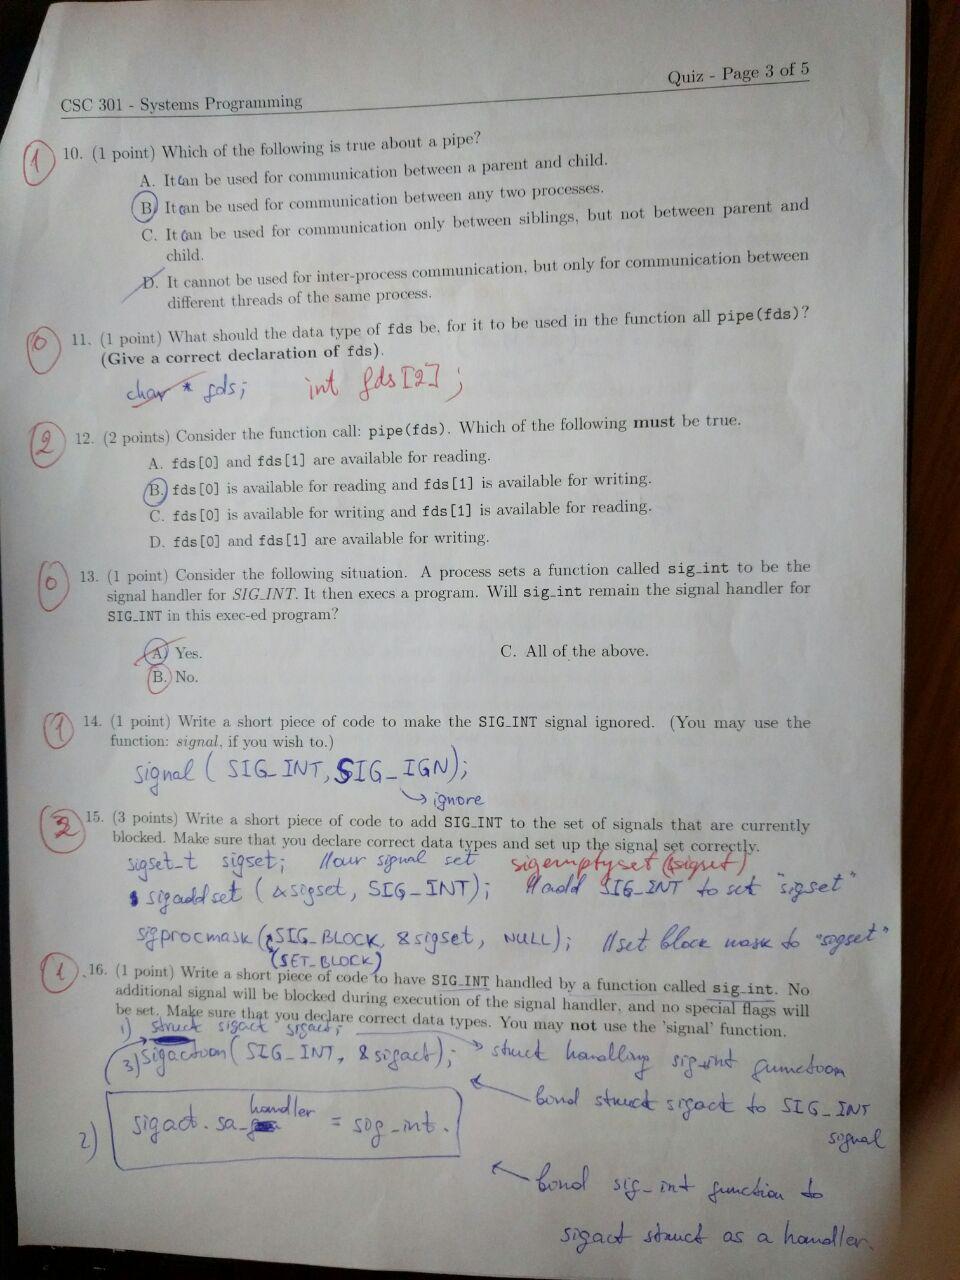 CSC 301 - Systems Programming
Quiz - Page 3 of 5
1
10. (1 point) Which of the following is true about a pipe?
A. It can be used for communication between a parent and child.
B. It can be used for communication between any two processes.
C. It can be used for communication only between siblings, but not between parent and
child.
D. It cannot be used for inter-process communication, but only for communication between
different threads of the same process.
0
11. (1 point) What should the data type of fds be, for it to be used in the function all pipe(fds)?
(Give a correct declaration of fds).
char * fds; int fds [2] ;
2
12. (2 points) Consider the function call: pipe(fds). Which of the following must be true.
A. fds[0] and fds[1] are available for reading.
B. fds[0] is available for reading and fds[1] is available for writing.
C. fds[0] is available for writing and fds[1] is available for reading.
D. fds[0] and fds[1] are available for writing.
0
13. (1 point) Consider the following situation. A process sets a function called sig_int to be the
signal handler for SIG_INT. It then execs a program. Will sig_int remain the signal handler for
SIG_INT in this exec-ed program?
A. Yes. C. All of the above.
B. No.
1
14. (1 point) Write a short piece of code to make the SIG_INT signal ignored. (You may use the
function: signal, if you wish to.)
signal ( SIG_INT, SIG_IGN);
ignore
15. (3 points) Write a short piece of code to add SIG_INT to the set of signals that are currently
blocked. Make sure that you declare correct data types and set up the signal set correctly.
sigset_t sigset; //our signal set sigemptyset (&sigset)
sigaddset (&sigset, SIG_INT); //add SIG_INT to set "sigset"
sigprocmask (SIG_BLOCK, &sigset, NULL); //set block mask to "sigset"
(SET_BLOCK)
1
16. (1 point) Write a short piece of code to have SIG_INT handled by a function called sig_int. No
additional signal will be blocked during execution of the signal handler, and no special flags will
be set. Make sure that you declare correct data types. You may not use the 'signal' function.
1) struct sigact sigact;
3) sigaction ( SIG_INT, &sigact); struct handling sig_int function
bond struct sigact to SIG_INT
signal
2) sigact.sa_handler = sig_int.
bond sig_int function to
sigact struct as a handler.